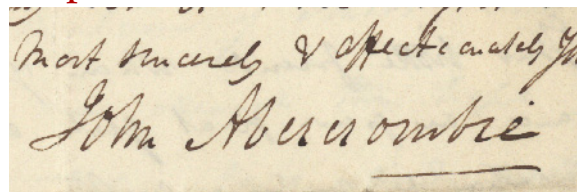 Most sincerely & affectionately
John Abercrombie